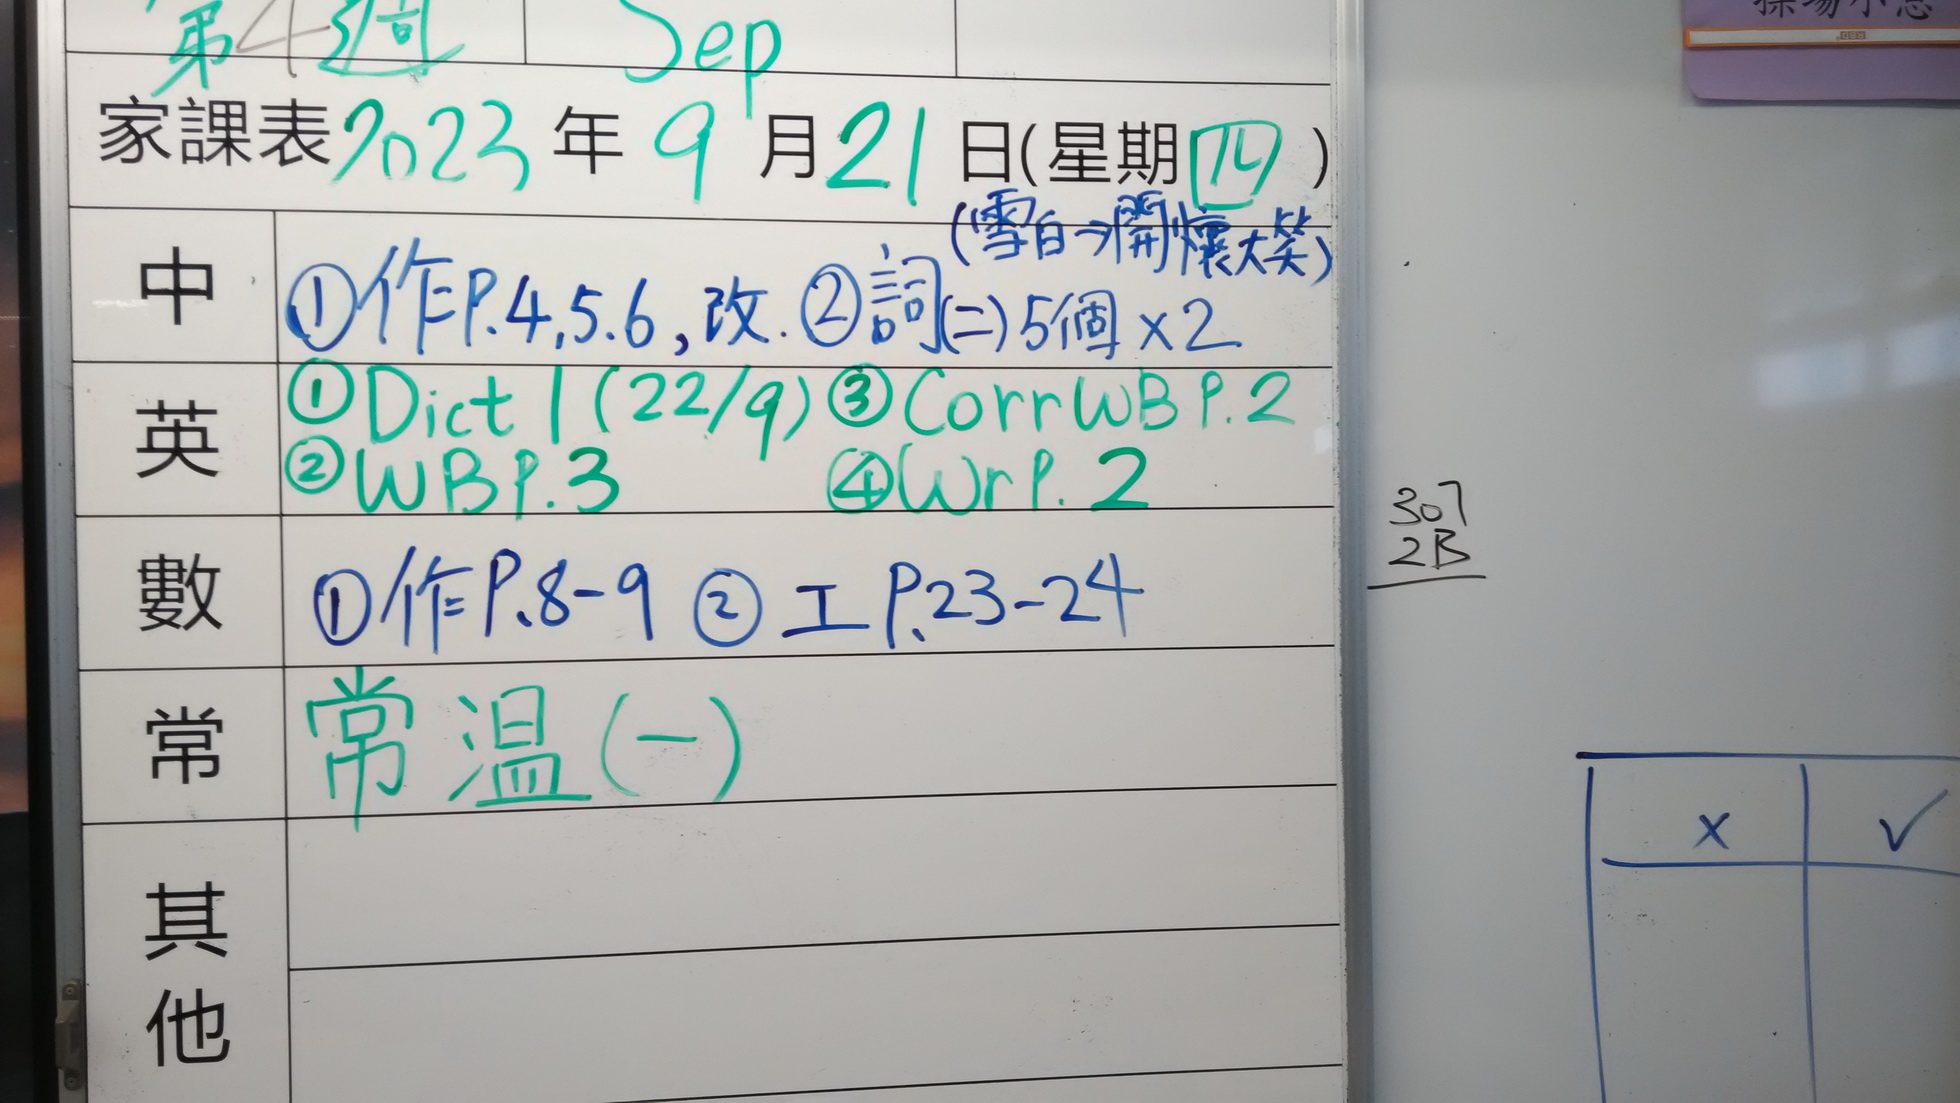 第4週 Sep
家課表2023年9月21日(星期四)
(雪白→開懷大笑)
中 ①作P.4,5.6,改. ②詞(二)5個×2
英 ①Dict 1 (22/9) ③Corr WB P.2
②WB P.3 ④Wr P.2
數 ①作P.8-9 ②工P.23-24
常 常溫(一)
其他
307
2B
× ✓